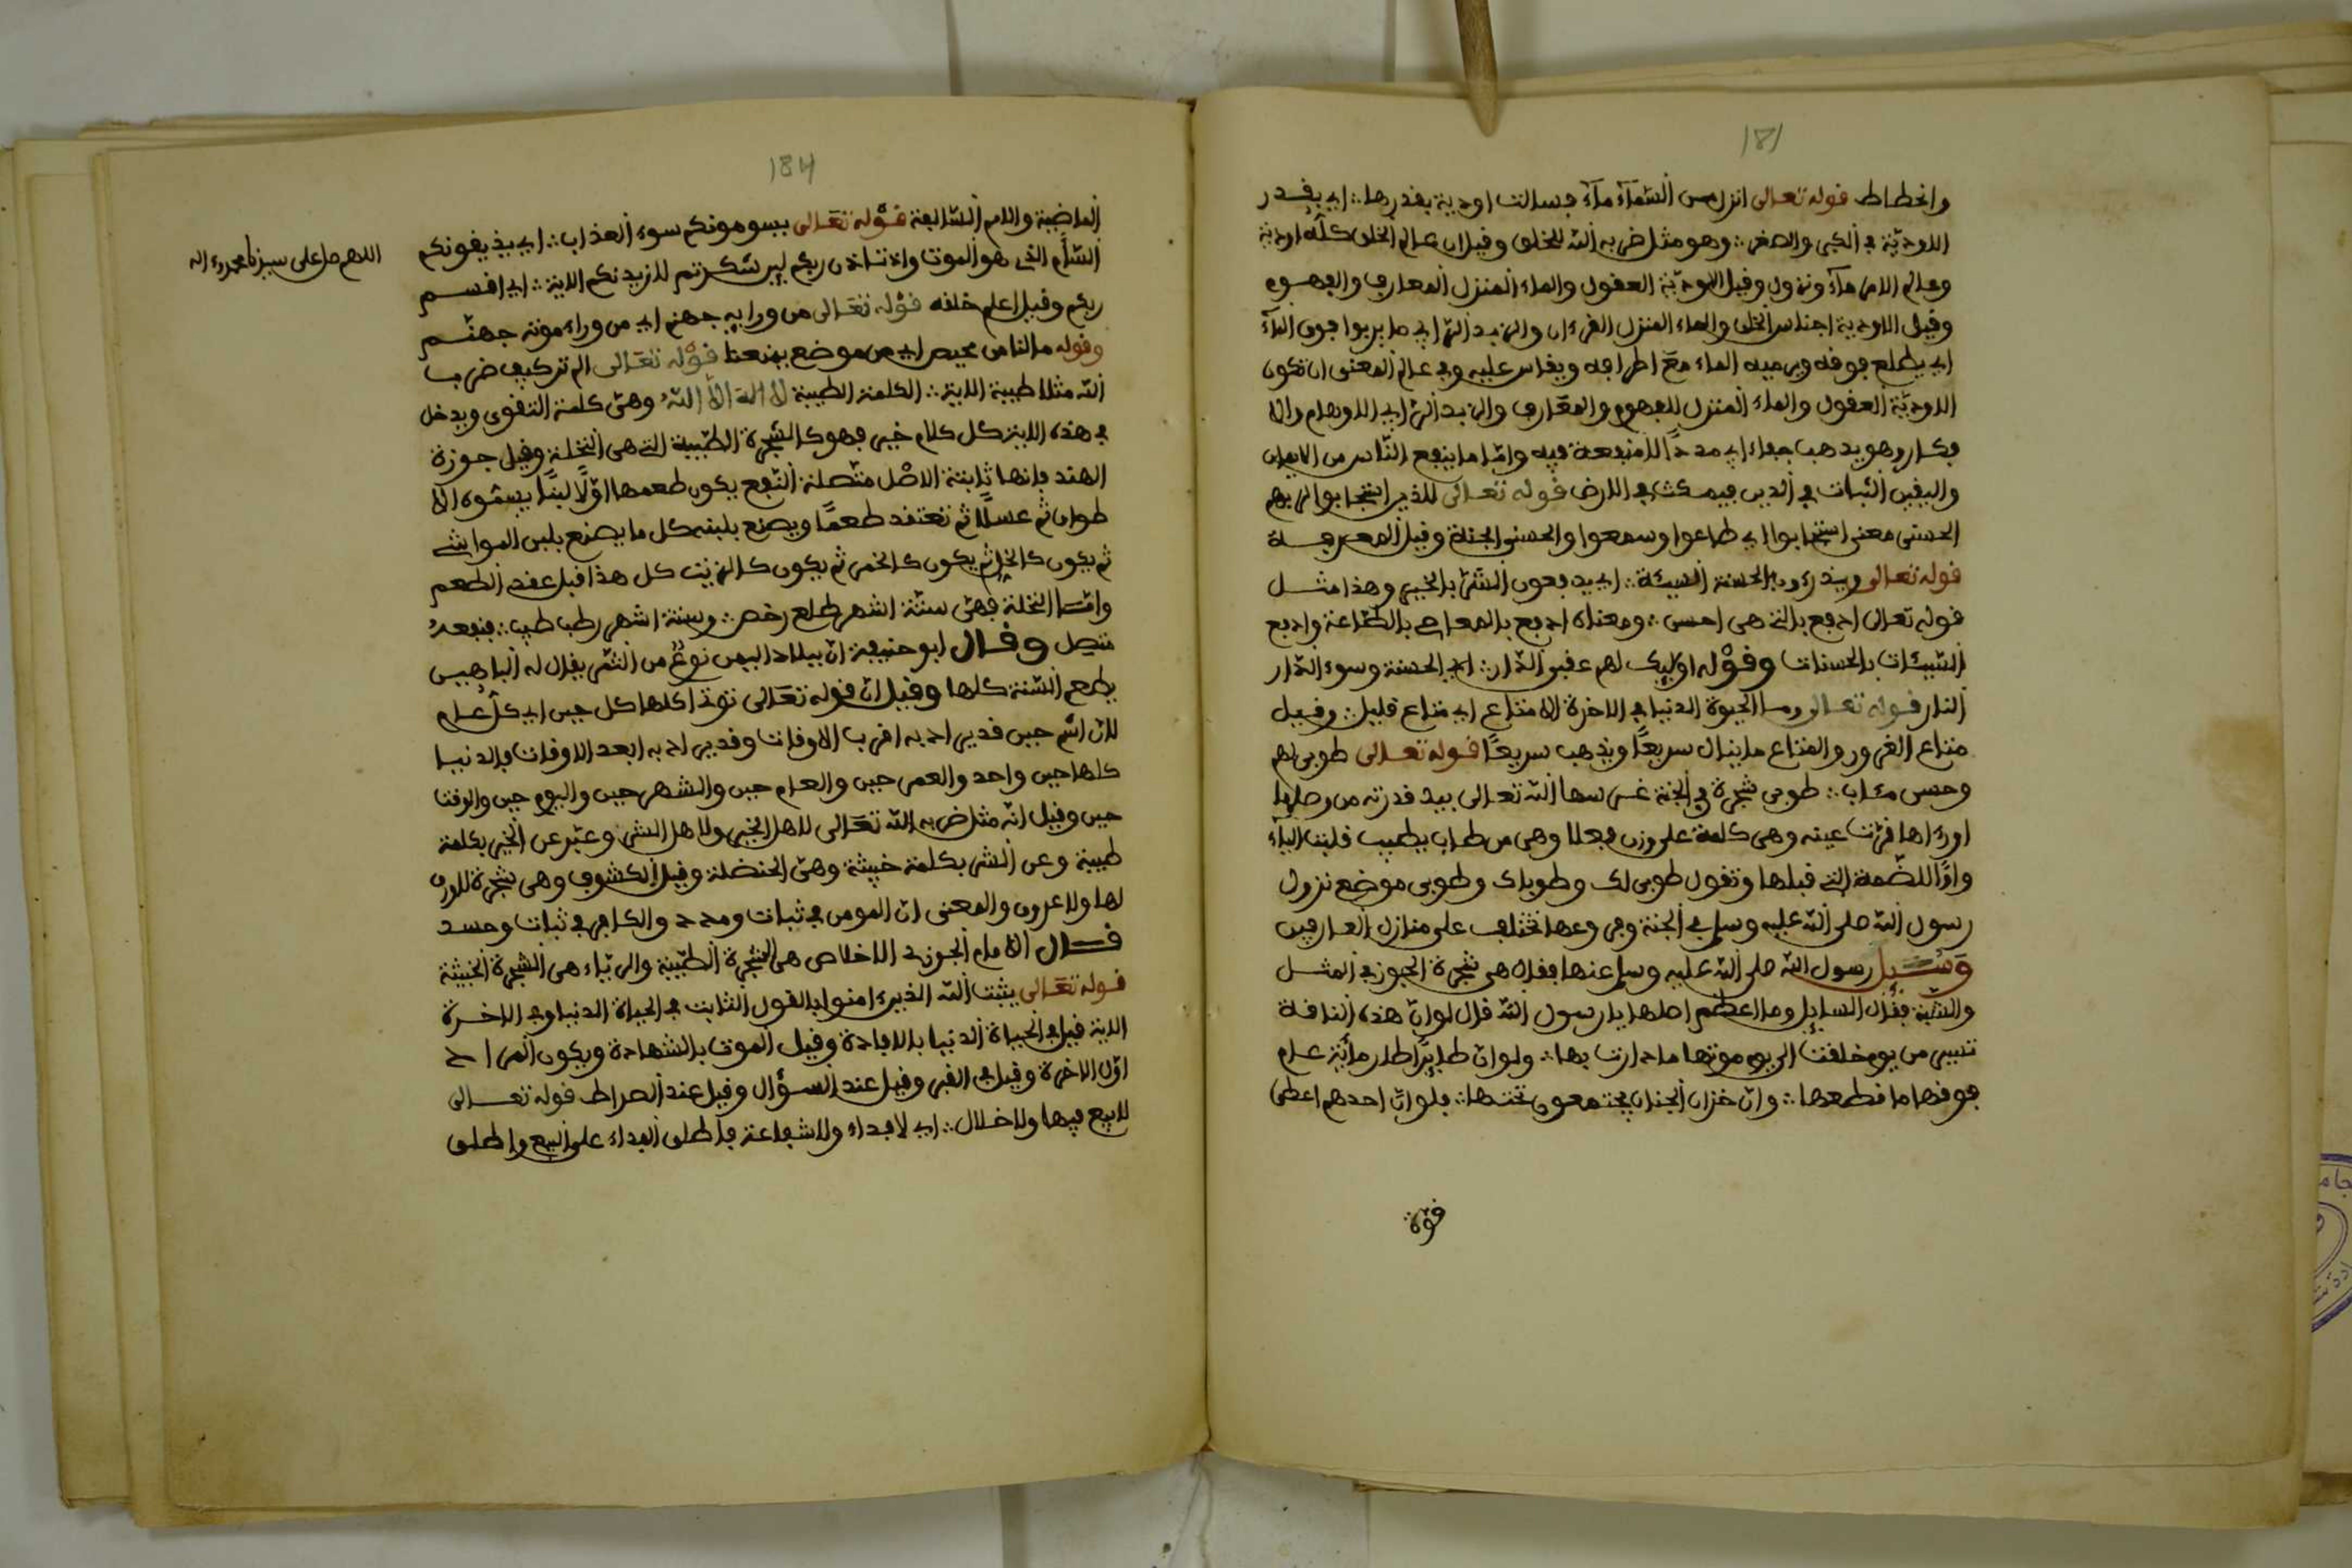 181
وانحطاط قوله تعالى انزل من السّمآء مآء فسالت اودية بقدرها ∴ اي بقدر
الاودية في الكبر والصغر ∴ وهو مثل ضربه الله للخلق وقيل ان عالم الخلق كله اودية
وعالم الامر مآء ونزول وقيل الاودية العقول والماء المنزل المعارف والفهوم
وقيل الاودية اجناس الخلق والماء المنزل القرءان والزبد الرّابي ما يربوا فوق المآء
اي يطلع فوقه ويرميه الماء مع اطرافه ويقاس عليه وفي عالم المعنى ان تكون
الاودية العقول والماء المنزل الفهوم والمعارف والزبد الرّابي الاوهام والا
فكار وهو يذهب جفاء اي مددًا لا منفعة فيه وامّا ما ينفع النّاس من الايمان
واليقين الثبات في الدين فيمكث في الارض قوله تعالى للذين استجابوا لربهم
الحسنى معنى استجابوا اي طاعوا وسمعوا والحسنى الجنة وقيل المعرفة
قوله تعالى ويدرءون بالحسنة السيئة ∴ اي يدفعون الشّر بالخير وهذا مثل
قوله تعالى ادفع بالتي هي احسن ∴ ومعناه ادفع بالمعاصي بالطّاعة وادفع
السّيئات بالحسنات وقوْله اوليك لهم عقبى الدّار ∴ اي الحسنة وسوء الدّار
النار قوله تعالى وما الحيوة الدنيا في الاخرة الا متاع اي متاع قليل ∴ وقيل
متاع الغرور والمتاع ما ينال سريعًا ويذهب سريعًا قوله تعالى طوبى لهم
وحسن مئاب ∴ طوبى شجرة في الجنة غرسها الله تعالى بيد قدرته من وصلها
اورءاها قرّت عينه وهي كلمة على وزن فعلا وهي من طاب يطيب قلبت اليآء
واوًا للضّمة التي قبلها وتقول طوبى لك وطوباك وطوبى موضع نزول
رسول الله صلى الله عليه وسلم في الجنة وفروعها تختلف على منازل العارفين
وَسُيل رسول الله صلى الله عليه وسلم عنها فقال هي شجرة الجوز في المثل
والشبه فقال السايل وما اعظم اصلها يا رسول الله قال لو انّ هذه الناقة
تسير من يوم خلقت الى يوم موتها ما دارت بها ∴ ولو انّ طايرًا طار مائة عام
فوقها ما قطعها ∴ وانّ خزان الجنان يجتمعون تحتها ∴ فلو انّ احدهم اعطى
قوّة
184
الماضية والامم السّالفة قوْله تعَالى يسومونكم سوء العذاب ∴ اي يذيقونكم
السّأم الذي هو الموت واذ تاذن ربكم لين شكرتم لازيدنكم الاية ∴ اي اقسم
ربكم وقيل اعلم خلقه قوْله تعَالى من ورايه جهنم اي من وراء موته جهنّم
وقوله ما لنا من محيص اي من موضع يمنعنا قوْله تعَالى الم تر كيف ضرب
الله مثلا طيبة الاية ∴ الكلمة الطيبة لا اله الا الله وهي كلمة التقوى ويدخل
في هذه الاية كل كلام خير فهو كالشّجرة الطيّبة التي هي النّخلة وقيل جوزة
الهند فانها ثابتة الاصْل متّصلة النّفع يكون طعمها اوّلًا لبنًا يسمّوه الا
طوان ثم عسلًا ثم تعتقد طعمًا ويصنع بلبنه كل ما يصنع بلبن المواشي
ثم يكون كالخلّ ثم يكون كالخمر ثم يكون كالزيت كل هذا قبل عقد الطعم
وامّا النخلة فهيَ ستة اشهر طلع رخص ∴ وستة اشهر رطب طيب ∴ فنفعهُ
متصل وقال ابو حنيفة انّ ببلاد اليمن نوعٌ من التّمر يقال له الباهيس
يطعم السّنة كلها وقيل انّ قوله تعَالى توتي اكلها كل حين اي كلّ عام
لانّ اسْم حين قد يراد به اقرب الاوقات وقد يراد به ابعد الاوقات فالدنيا
كلها حين واحد والعمر حين والعام حين والشهر حين واليوم حين والوقت
حين وقيل انّه مثل ضربه الله تعَالى لاهل الخير ولاهل الشر وعبّر عن الخير بكلمة
طيبة وعن الشر بكلمة خبيثة وهيَ الحنضلة وقيل الكشوف وهي شجرة لا ورق
لها ولا عروق والمعنى انّ المومن في ثبات ومدد والكافر في ثبات وحسد
قال الامام الجوزي الاخلاص هي الشّجرة الطّيبة والريّاء هي الشّجرة الخبيثة
قوله تعَالى يثبت الله الذين ءامنوا بالقول الثابت في الحياة الدنيا وفي الاخرة
الاية قيل في الحياة الدنيا بالافادة وقيل الموت بالشهادة ويكون المراد
اوّل الاخرة وقيل في القبر وقيل عند السؤال وقيل عند الصراط قوله تعالى
لا بيع فيها ولا خلال ∴ اي لا فداء ولا شفاعة فاطلق الفداء على البيع واطلق
اللهم صل على سيدنا محمد وءاله